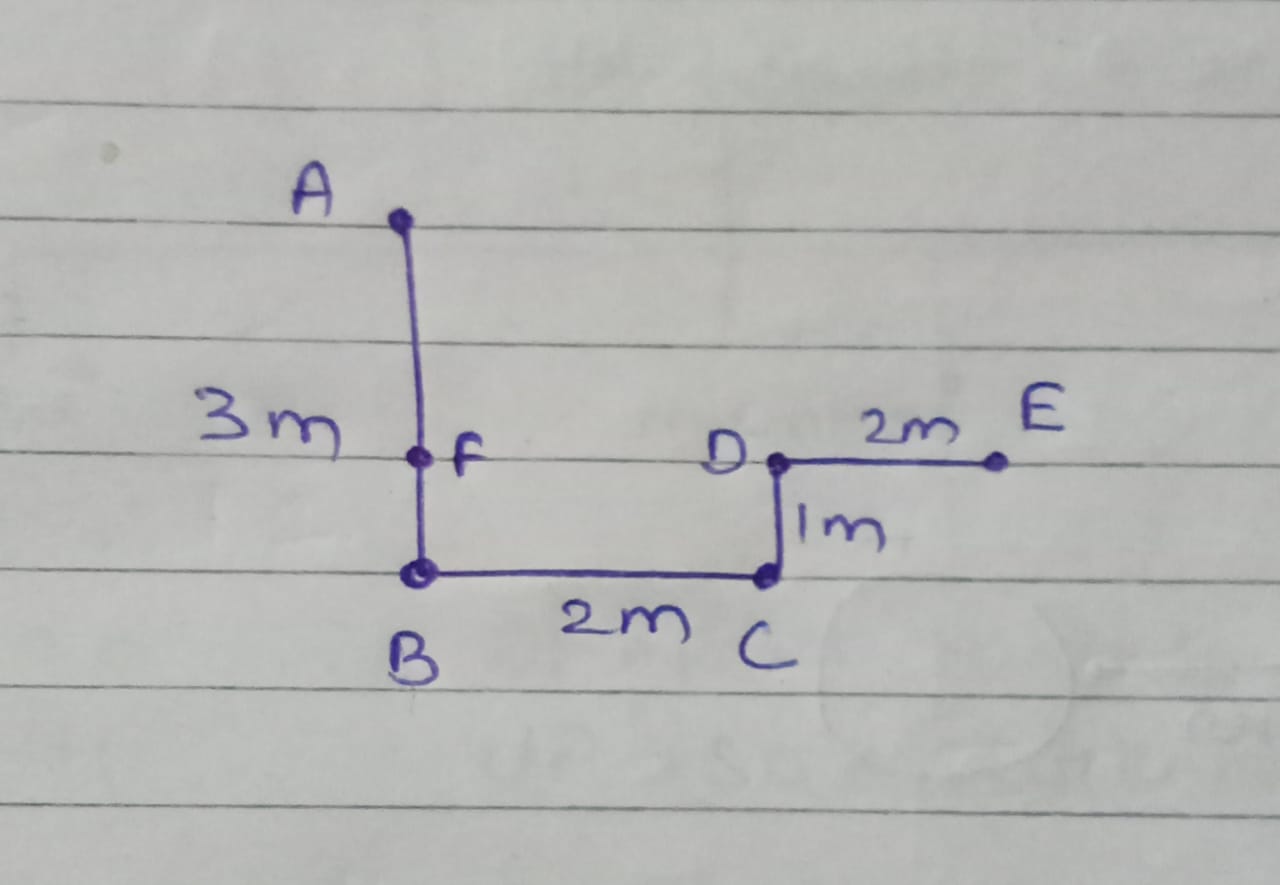 A
3m F D 2m E
1m
2m
B C